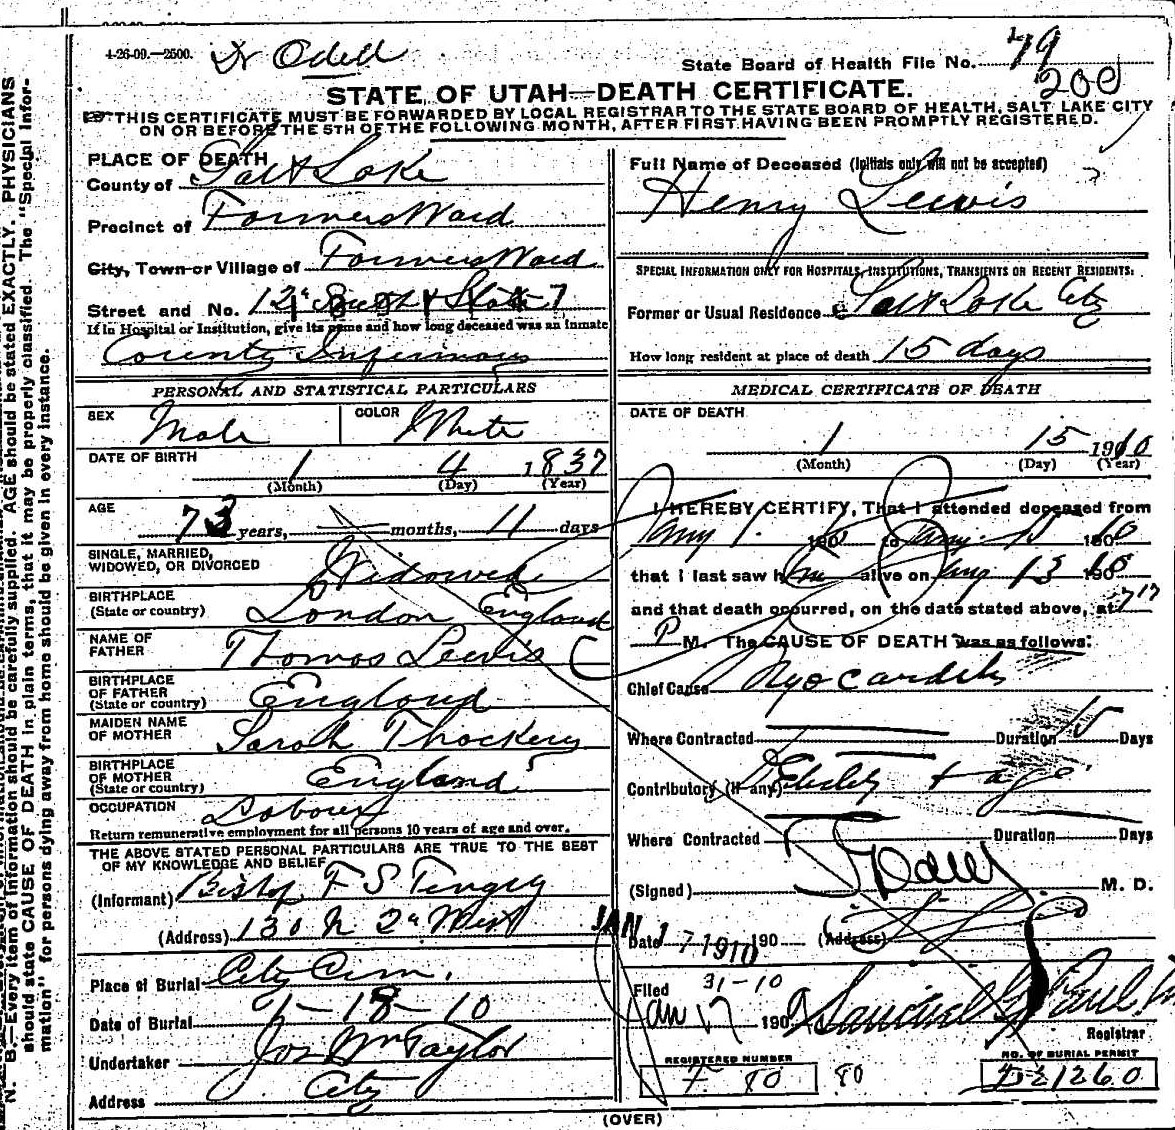 4-26-09.—2500. Dr Odell
State Board of Health File No. 79
200
STATE OF UTAH—DEATH CERTIFICATE.
THIS CERTIFICATE MUST BE FORWARDED BY LOCAL REGISTRAR TO THE STATE BOARD OF HEALTH, SALT LAKE CITY
ON OR BEFORE THE 5TH OF THE FOLLOWING MONTH, AFTER FIRST HAVING BEEN PROMPTLY REGISTERED.
PLACE OF DEATH
County of Salt Lake
Precinct of Farmers Ward
City, Town or Village of Farmers Ward
Street and No. 12" South & State
If in Hospital or Institution, give its name and how long deceased was an inmate
County Infirmary
PERSONAL AND STATISTICAL PARTICULARS
SEX Male COLOR White
DATE OF BIRTH 1 4 1837
(Month) (Day) (Year)
AGE 73 years, months, 11 days
SINGLE, MARRIED,
WIDOWED, OR DIVORCED Widowed
BIRTHPLACE
(State or country) London England
NAME OF
FATHER Thomas Lewis
BIRTHPLACE
OF FATHER
(State or country) England
MAIDEN NAME
OF MOTHER Sarah Thockery
BIRTHPLACE
OF MOTHER
(State or country) England
OCCUPATION Laborer
Return remunerative employment for all persons 10 years of age and over.
THE ABOVE STATED PERSONAL PARTICULARS ARE TRUE TO THE BEST
OF MY KNOWLEDGE AND BELIEF
(Informant) Bishop F S Tingey
(Address) 130 N 2d West
Place of Burial City Cem.
Date of Burial 1-18-10
Undertaker Jos Wm Taylor
Address City
Full Name of Deceased (Initials only will not be accepted)
Henry Lewis
SPECIAL INFORMATION ONLY FOR HOSPITALS, INSTITUTIONS, TRANSIENTS OR RECENT RESIDENTS:
Former or Usual Residence Salt Lake City
How long resident at place of death 15 days
MEDICAL CERTIFICATE OF DEATH
DATE OF DEATH
1 15 1910
(Month) (Day) (Year)
I HEREBY CERTIFY, That I attended deceased from
Jany 1. 190 to Jany. 15 1910
that I last saw him alive on Jany 13 1910
and that death occurred, on the date stated above, at 7
P M. The CAUSE OF DEATH was as follows:
Chief Cause Myocarditis
Where Contracted Duration 15 Days
Contributory (if any) age
Where Contracted Duration Days
(Signed) M. D.
Date JAN 17 1910 190 (Address)
31-10
Filed Jan 17 190 Samuel G Paul
Registrar
REGISTERED NUMBER
80 80
NO. OF BURIAL PERMIT
21260
(OVER)
N. B.—Every item of information should be carefully supplied. AGE should be stated EXACTLY. PHYSICIANS
should state CAUSE OF DEATH in plain terms, that it may be properly classified. The "Special Infor-
mation" for persons dying away from home should be given in every instance.